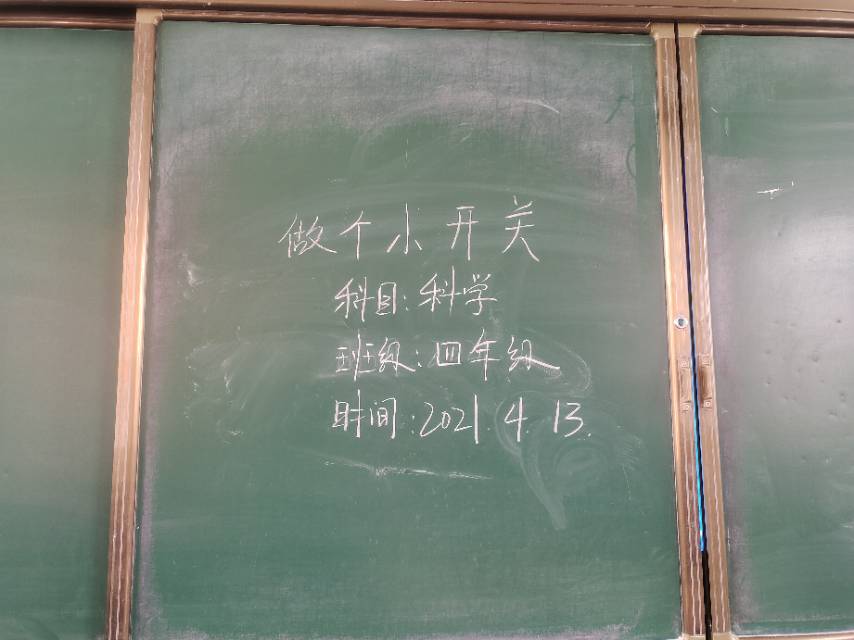 做个小开关
科目:科学
班级:四年级
时间:2021.4.13.